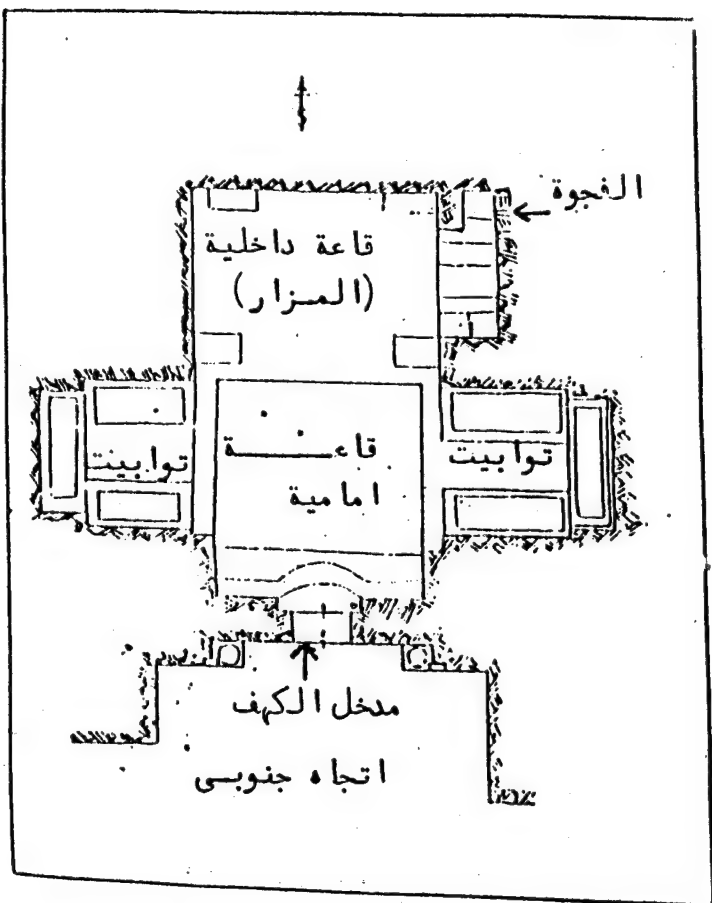 الفجوة
قاعة داخلية
(المزار)
توابيت
قاعة
امامية
توابيت
مدخل الكهف
اتجاه جنوبي